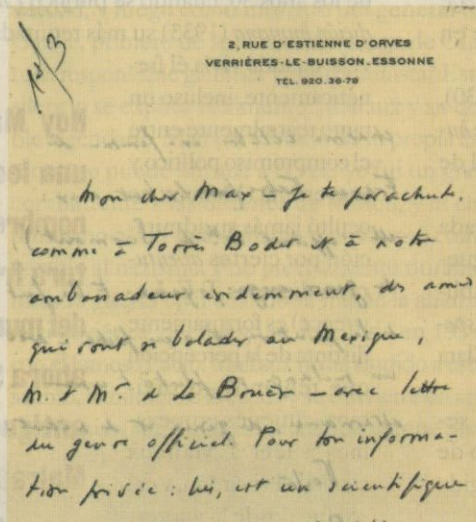 1er/3
2, RUE D'ESTIENNE D'ORVES
VERRIÈRES-LE-BUISSON. ESSONNE
TÉL. 920.38-78
Mon cher Max – Je te parachute,
comme à Torrès Bodet et à notre
ambassadeur évidemment, des amis
qui vont se balader au Mexique,
M. & Me. de La Brouër – avec lettre
du genre officiel. Pour ton informa-
tion privée : lui, est un scientifique